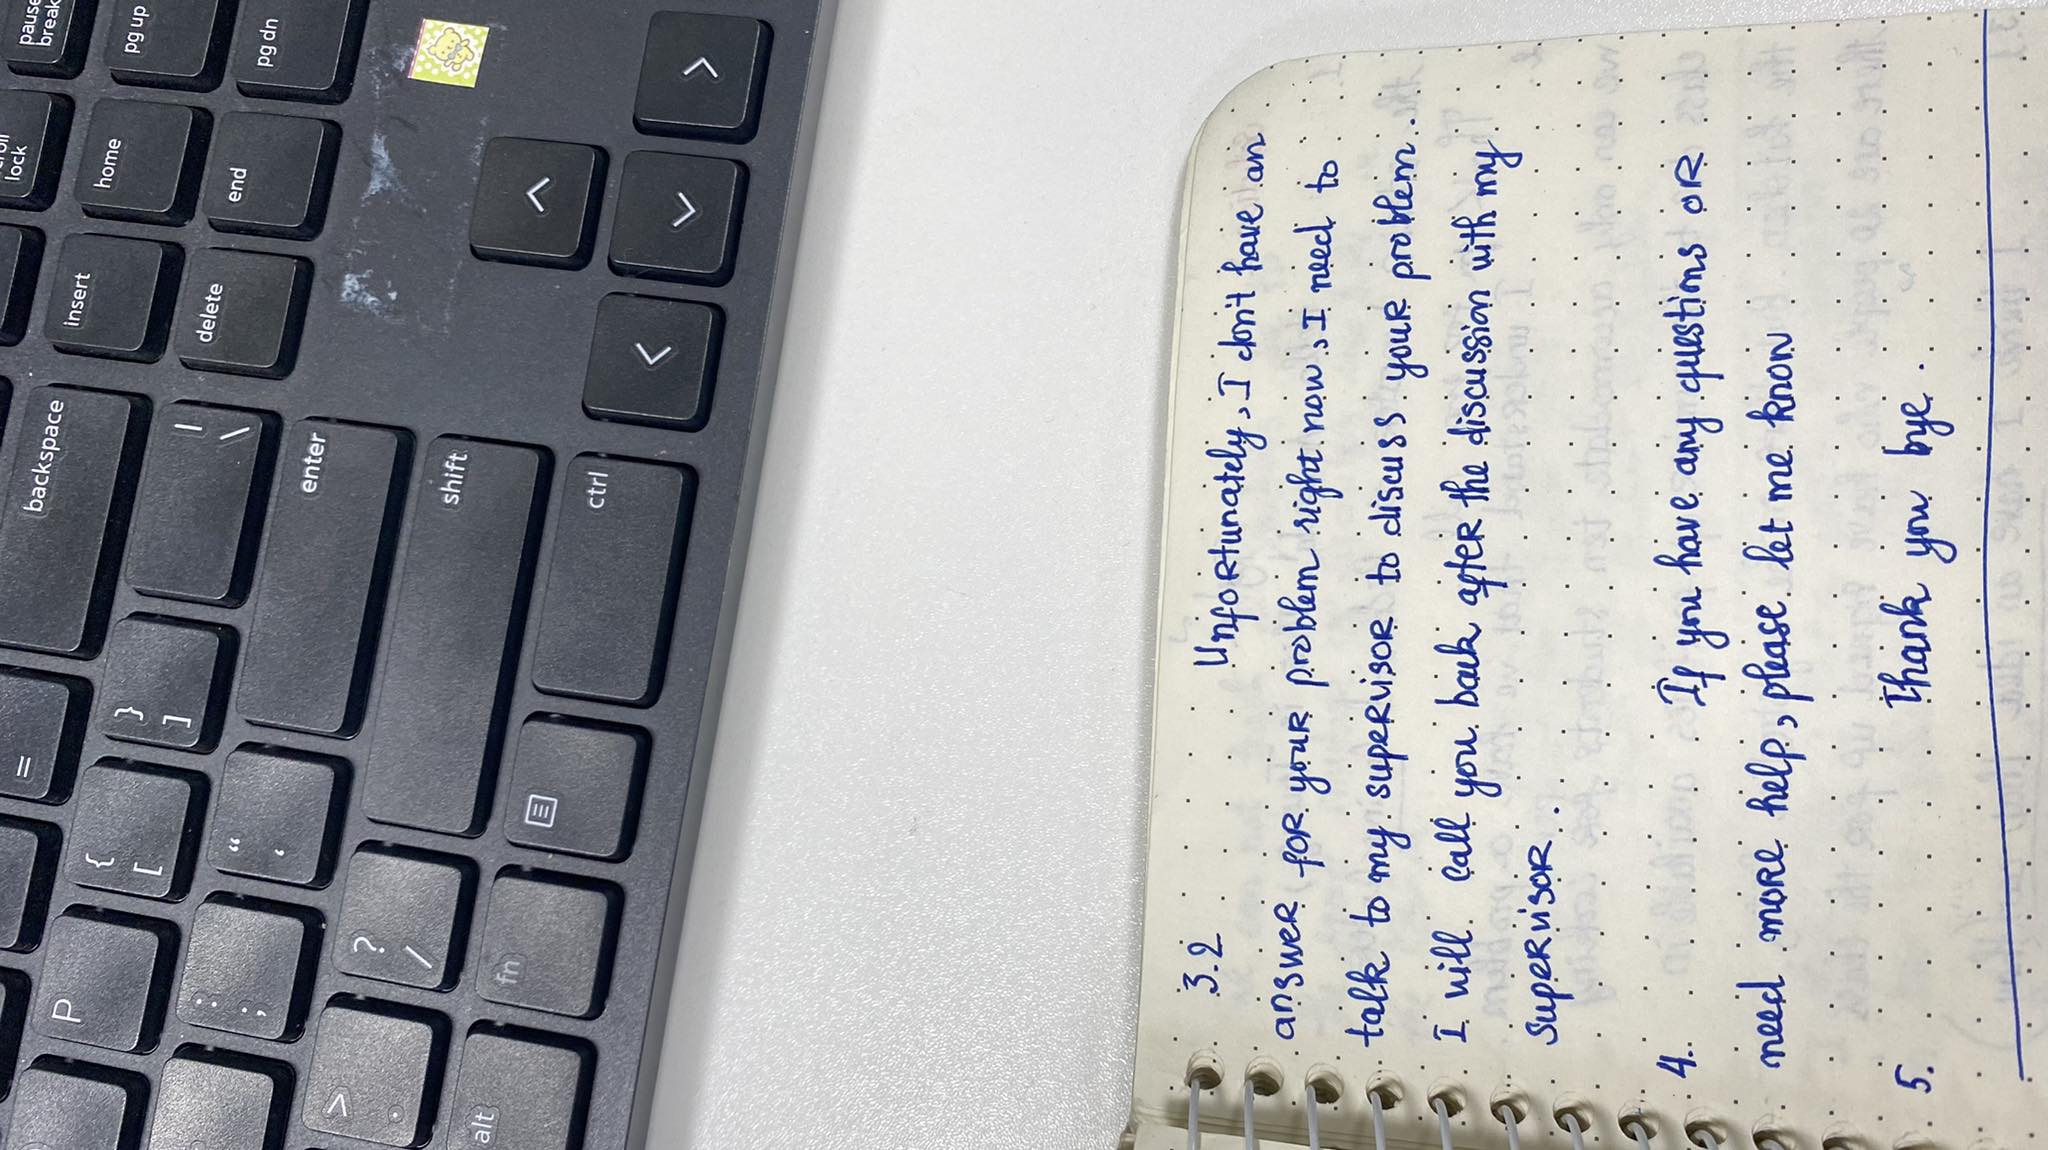 =
backspace
scroll
lock
pause
break
P
{
[
}
]
|
\
insert
home
pg up
:
;
“
‘
enter
delete
end
pg dn
>
.
?
/
shift
alt
fn
ctrl
^
<
>
3.2 Unfortunately, I don't have an
answer for your problem right now, I need to
talk to my supervisor to discuss your problem.
I will call you back after the discussion with my
supervisor.
4. If you have any questions or
need more help, please let me know
5. Thank you bye.